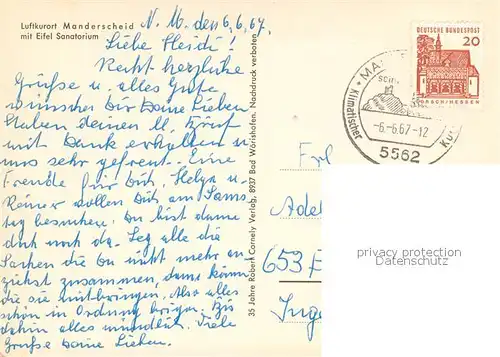 Luftkurort Manderscheid
mit Eifel Sanatorium
N. M. den 6.6.67.
Liebe Heidi!
Recht herzliche
Grüße u. alles Gute
wünschen Dir Deine Lieben
Haben deinen lb. Brief
mit Dank erhalten u.
uns sehr gefreut. Eine
Freude für Dich, Helga u.
Reiner wollen Dich am Sams
tag besuchen. Du bist dann
doch noch da. Leg alle die
Sachen die Du nicht mehr an
ziehst zusammen, dann kann
die sie mitbringen. Also alles
schön in Ordnung bringen. Bis
dahin alles mündlich. Viele
Grüße Deine Lieben.
35 Jahre Robert Cornely Verlag, 8937 Bad Wörishofen. Nachdruck verboten
DEUTSCHE BUNDESPOST
20
LORSCH/HESSEN
MA
Klimatischer
Ku
-6.-6.67-12
5562
Frl
Adel
653
Inge
privacy protection
Datenschutz